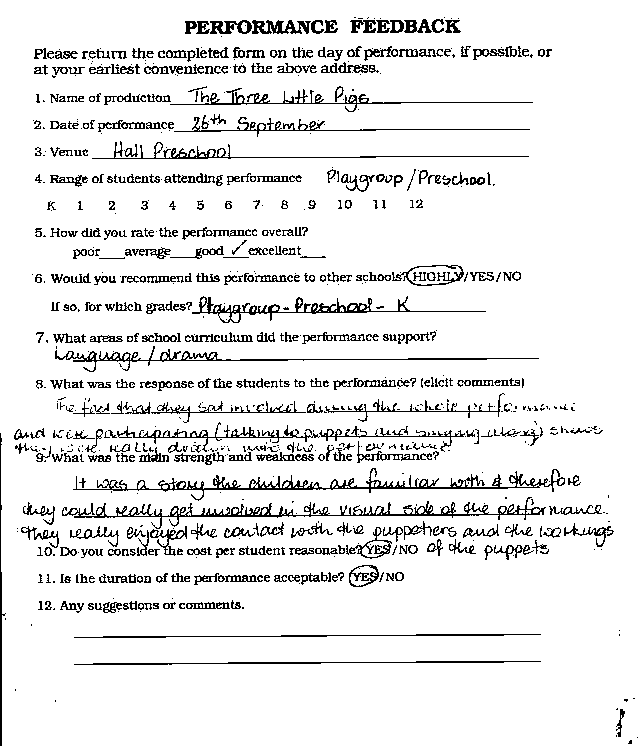 PERFORMANCE FEEDBACK
Please return the completed form on the day of performance, if possible, or
at your earliest convenience to the above address.
1. Name of production The Three Little Pigs
2. Date of performance 26th September
3. Venue Hall Preschool
4. Range of students attending performance Playgroup/Preschool.
K 1 2 3 4 5 6 7 8 9 10 11 12
5. How did you rate the performance overall?
poor___average___good ✓ excellent___
6. Would you recommend this performance to other schools? HIGHLY/YES/NO
If so, for which grades? Playgroup - Preschool - K
7. What areas of school curriculum did the performance support?
Language / drama
8. What was the response of the students to the performance? (elicit comments)
The fact that they sat involved during the whole performance
and were participating (talking to puppets and singing along) shows
they were really drawn into the performance
9. What was the main strength and weakness of the performance?
It was a story the children are familiar with & therefore
they could really get involved in the visual side of the performance.
They really enjoyed the contact with the puppeteers and the workings
of the puppets
10. Do you consider the cost per student reasonable? YES/NO
11. Is the duration of the performance acceptable? YES/NO
12. Any suggestions or comments.